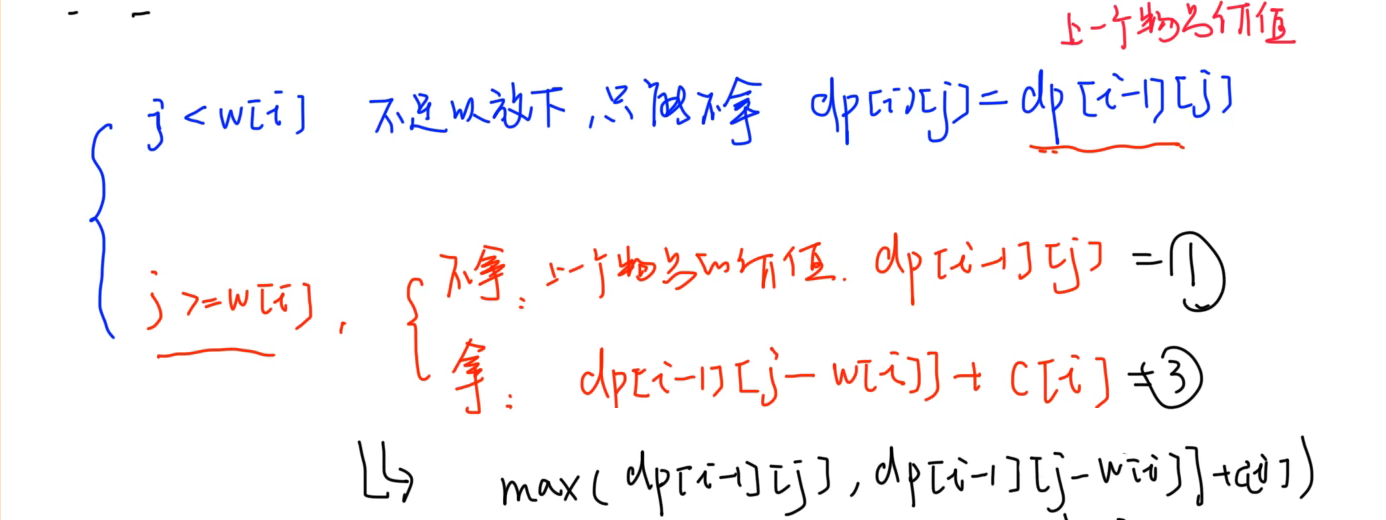 上一个物品价值
j < w[i] 不足以放下,只能不拿 dp[i][j]=dp[i-1][j]
j >=w[i], 不拿:上一个物品的价值. dp[i-1][j] =①
拿: dp[i-1][j-w[i]]+ c[i] =③
max( dp[i-1][j], dp[i-1][j-w[i]]+c[i])